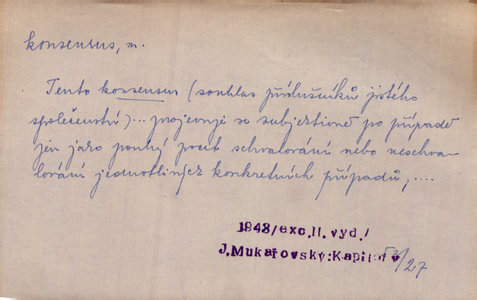 konsensus, m.
Tento konsensus (souhlas příslušníků jistého
společenství)... projevuje se subjektivně po případě
jen jako pouhý pocit schvalování nebo neschva-
lování jednotlivých konkretních případů,....
1948/exc.II.vyd./
J.Mukařovský:Kapitoly
/27